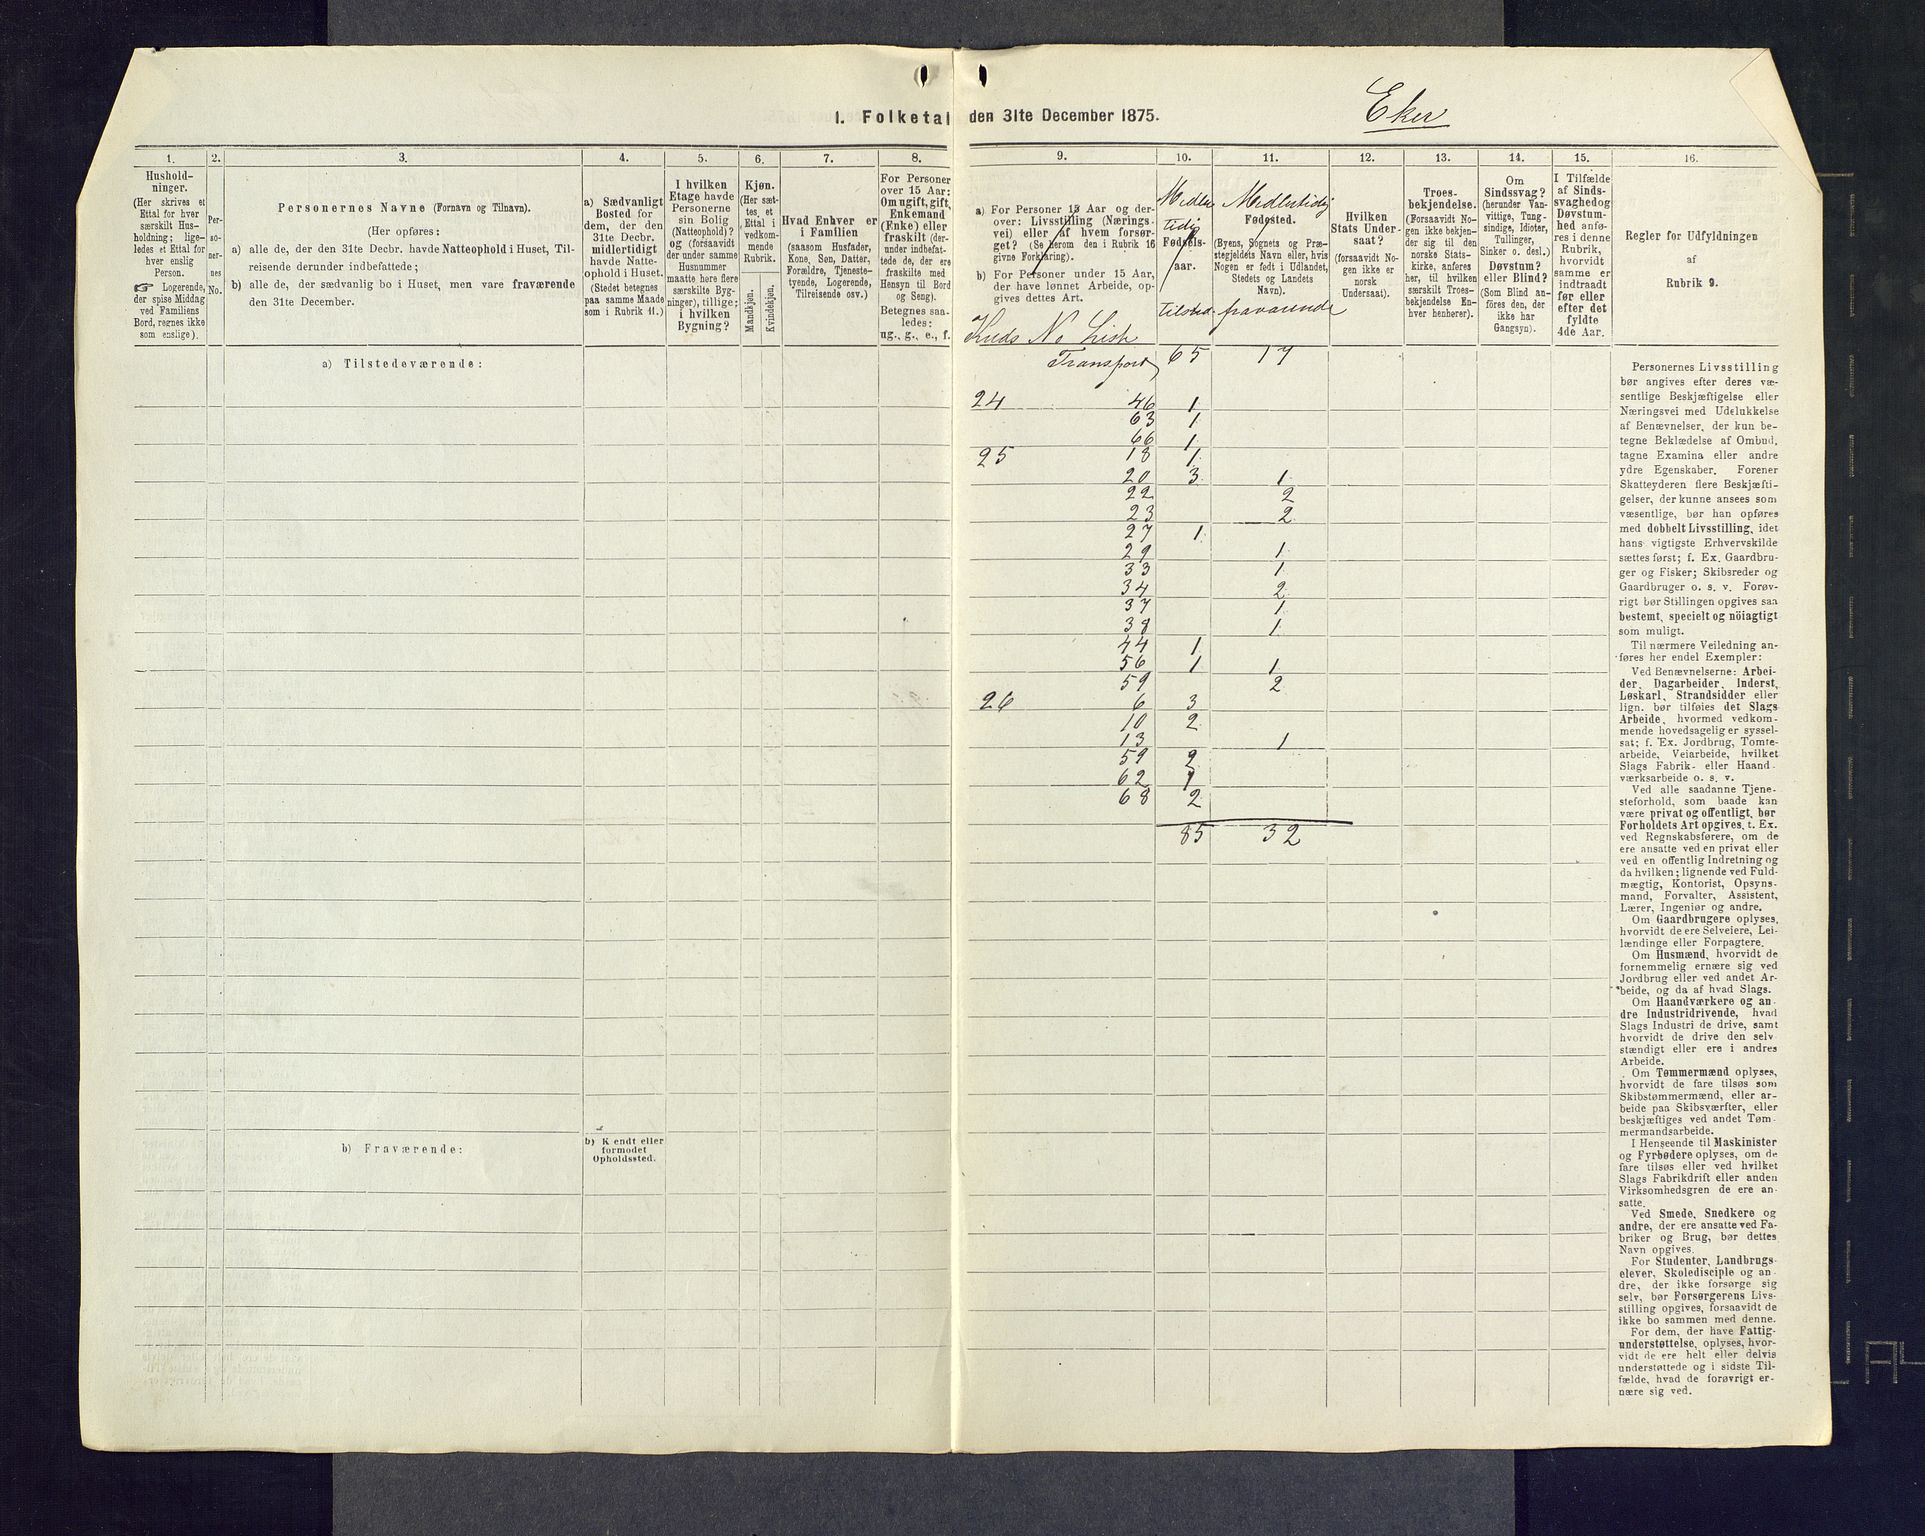 I. Folketal den 31te December 1875.
Eker
1.
2.
3.
4.
5.
6.
7.
8.
9.
10.
11.
12.
13.
14.
15.
16.
Hushold-
ninger.
(Her skrives et
Ettal for hver
særskilt Hus-
holdning; lige-
ledes et Ettal for
hver enslig
Person.
☞ Logerende,
der spise Middag
ved Familiens
Bord, regnes ikke
som enslige).
Per-
so-
ner-
nes
No.
Personernes Navne (Fornavn og Tilnavn).
(Her opføres:
a) alle de, der den 31te Decbr. havde Natteophold i Huset, Til-
reisende derunder indbefattede;
b) alle de, der sædvanlig bo i Huset, men vare fraværende
den 31te December.
a) Sædvanligt
Bosted for
dem, der den
31te Decbr.
midlertidigt
havde Natte-
ophold i Huset.
(Stedet betegnes
paa samme Maade
som i Rubrik 11.)
I hvilken
Etage havde
Personerne
sin Bolig
(Natteophold)?
og (forsaavidt
der under samme
Husnummer
maatte høre flere
særskilte Byg-
ninger), tillige:
i hvilken
Bygning?
Kjøn.
(Her sæt-
tes et
Ettal i
vedkom-
mende
Rubrik.
Mandkjøn.
Kvindekjøn.
Hvad Enhver er
i Familien
(saasom Husfader,
Kone, Søn, Datter,
Forældre, Tjeneste-
tyende, Logerende,
Tilreisende osv.)
For Personer
over 15 Aar:
Om ugift, gift,
Enkemand
(Enke) eller
fraskilt (der-
under indbefat-
tede de, der ere
fraskilte med
Hensyn til Bord
og Seng).
Betegnes saa-
ledes:
ug., g., e., f.
a) For Personer 15 Aar og der-
over: Livsstilling (Nærings-
vei) eller af hvem forsør-
get? (Se herom den i Rubrik 16
givne Forklaring).
b) For Personer under 15 Aar,
der have lønnet Arbeide, op-
gives dettes Art.
Kreds No Liste
Midler
tidig
Fødsels-
aar.
tilsted.
Midlertidig
Fødested.
(Byens, Sognets og Præ-
stegjeldets Navn eller, hvis
Nogen er født i Udlandet,
Stedets og Landets
Navn).
fraværende
Hvilken
Stats Under-
saat?
(forsaavidt No-
gen ikke er
norsk
Undersaat).
Troes-
bekjendelse.
(Forsaavidt No-
gen ikke bekjen-
der sig til den
norske Stats-
kirke, anføres
her, til hvilken
særskilt Troes-
bekjendelse En-
hver henhører).
Om
Sindssvag?
(herunder Van-
vittige, Tung-
sindige, Idioter,
Tullinger,
Sinker o. desl.)
Døvstum?
eller Blind?
(Som Blind an-
føres den, der
ikke har
Gangsyn).
I Tilfælde
af Sinds-
svaghed og
Døvstum-
hed anfø-
res i denne
Rubrik,
hvorvidt
samme er
indtraadt
før eller
efter det
fyldte
4de Aar.
Regler for Udfyldningen
af
Rubrik 9.
a) Tilstedeværende:
Transport 65 17
24 46 1
63 1
66 1
25 18 1
20 3 1
22 2
23 2
27 1
29 1
33 1
34 2
37 1
38 1
44 1
56 1 1
59 2
26 6 3
10 2
13 1
59 2
62 1
68 2
85 32
b) Fraværende:
b) Kendt eller
formodet
Opholdssted.
Personernes Livsstilling
bør angives efter deres væ-
sentlige Beskjæftigelse eller
Næringsvei med Udelukkelse
af Benævnelser, der kun be-
tegne Beklædelse af Ombud,
tagne Examina eller andre
ydre Egenskaber. Forener
Skatteyderen flere Beskjæfti-
gelser, der kunne ansees som
væsentlige, bør han opføres
med dobbelt Livsstilling, idet
hans vigtigste Erhvervskilde
sættes først; f. Ex. Gaardbru-
ger og Fisker; Skibsreder og
Gaardbruger o. s. v. Forøv-
rigt bør Stillingen opgives saa
bestemt, specielt og nöiagtigt
som muligt.
Til nærmere Veiledning an-
føres her endel Exempler:
Ved Benævnelserne: Arbei-
der, Dagarbeider, Inderst,
Løskarl, Strandsidder eller
lign. bør tilføies det Slags
Arbeide, hvormed vedkom-
mende hovedsagelig er syssel-
sat; f. Ex. Jordbrug, Tomte-
arbeide, Veiarbeide, hvilket
Slags Fabrik- eller Haand-
værksarbeide o. s. v.
Ved alle saadanne Tjene-
steforhold, som baade kan
være privat og offentligt, bør
Forholdets Art opgives, t. Ex.
ved Regnskabsførere, om de
ere ansatte ved en privat eller
ved en offentlig Indretning og
da hvilken; lignende ved Fuld-
mægtig, Kontorist, Opsyns-
mand, Forvalter, Assistent,
Lærer, Ingeniør og andre.
Om Gaardbrugere oplyses,
hvorvidt de ere Selveiere, Lei-
lændinge eller Forpagtere.
Om Husmænd, hvorvidt de
fornemmelig ernære sig ved
Jordbrug eller ved andet Ar-
beide, og da af hvad Slags.
Om Haandværkere og an-
dre Industridrivende, hvad
Slags Industri de drive, samt
hvorvidt de drive den selv-
stændigt eller ere i andres
Arbeide.
Om Tømmermænd oplyses,
hvorvidt de fare tilsøs som
Skibstømmermænd, eller ar-
beide paa Skibsværfter, eller
beskjæftiges ved andet Tøm-
mermandsarbeide.
I Henseende til Maskinister
og Fyrbødere oplyses, om de
fare tilsøs eller ved hvilket
Slags Fabrikdrift eller anden
Virksomhedsgren de ere an-
satte.
Ved Smede, Snedkere og
andre, der ere ansatte ved Fa-
briker og Brug, bør dettes
Navn opgives.
For Studenter, Landbrugs-
elever, Skoledisciple og an-
dre, der ikke forsørge sig
selv, bør Forsørgerens Livs-
stilling opgives, forsaavidt de
ikke bo sammen med denne.
For dem, der have Fattig-
understøttelse, oplyses, hvor-
vidt de ere helt eller delvis
understøttede og i sidste Til-
fælde, hvad de forøvrigt er-
nære sig ved.